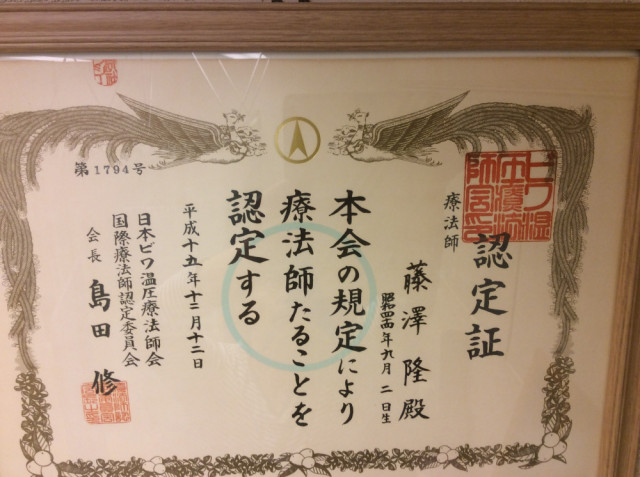 認定証
療法師
藤澤隆殿
昭和四十四年九月二日生
本会の規定により
療法師たることを
認定する
平成十五年十二月十二日
日本ビワ温圧療法師会
国際療法師認定委員会
会長 島田修
第1794号